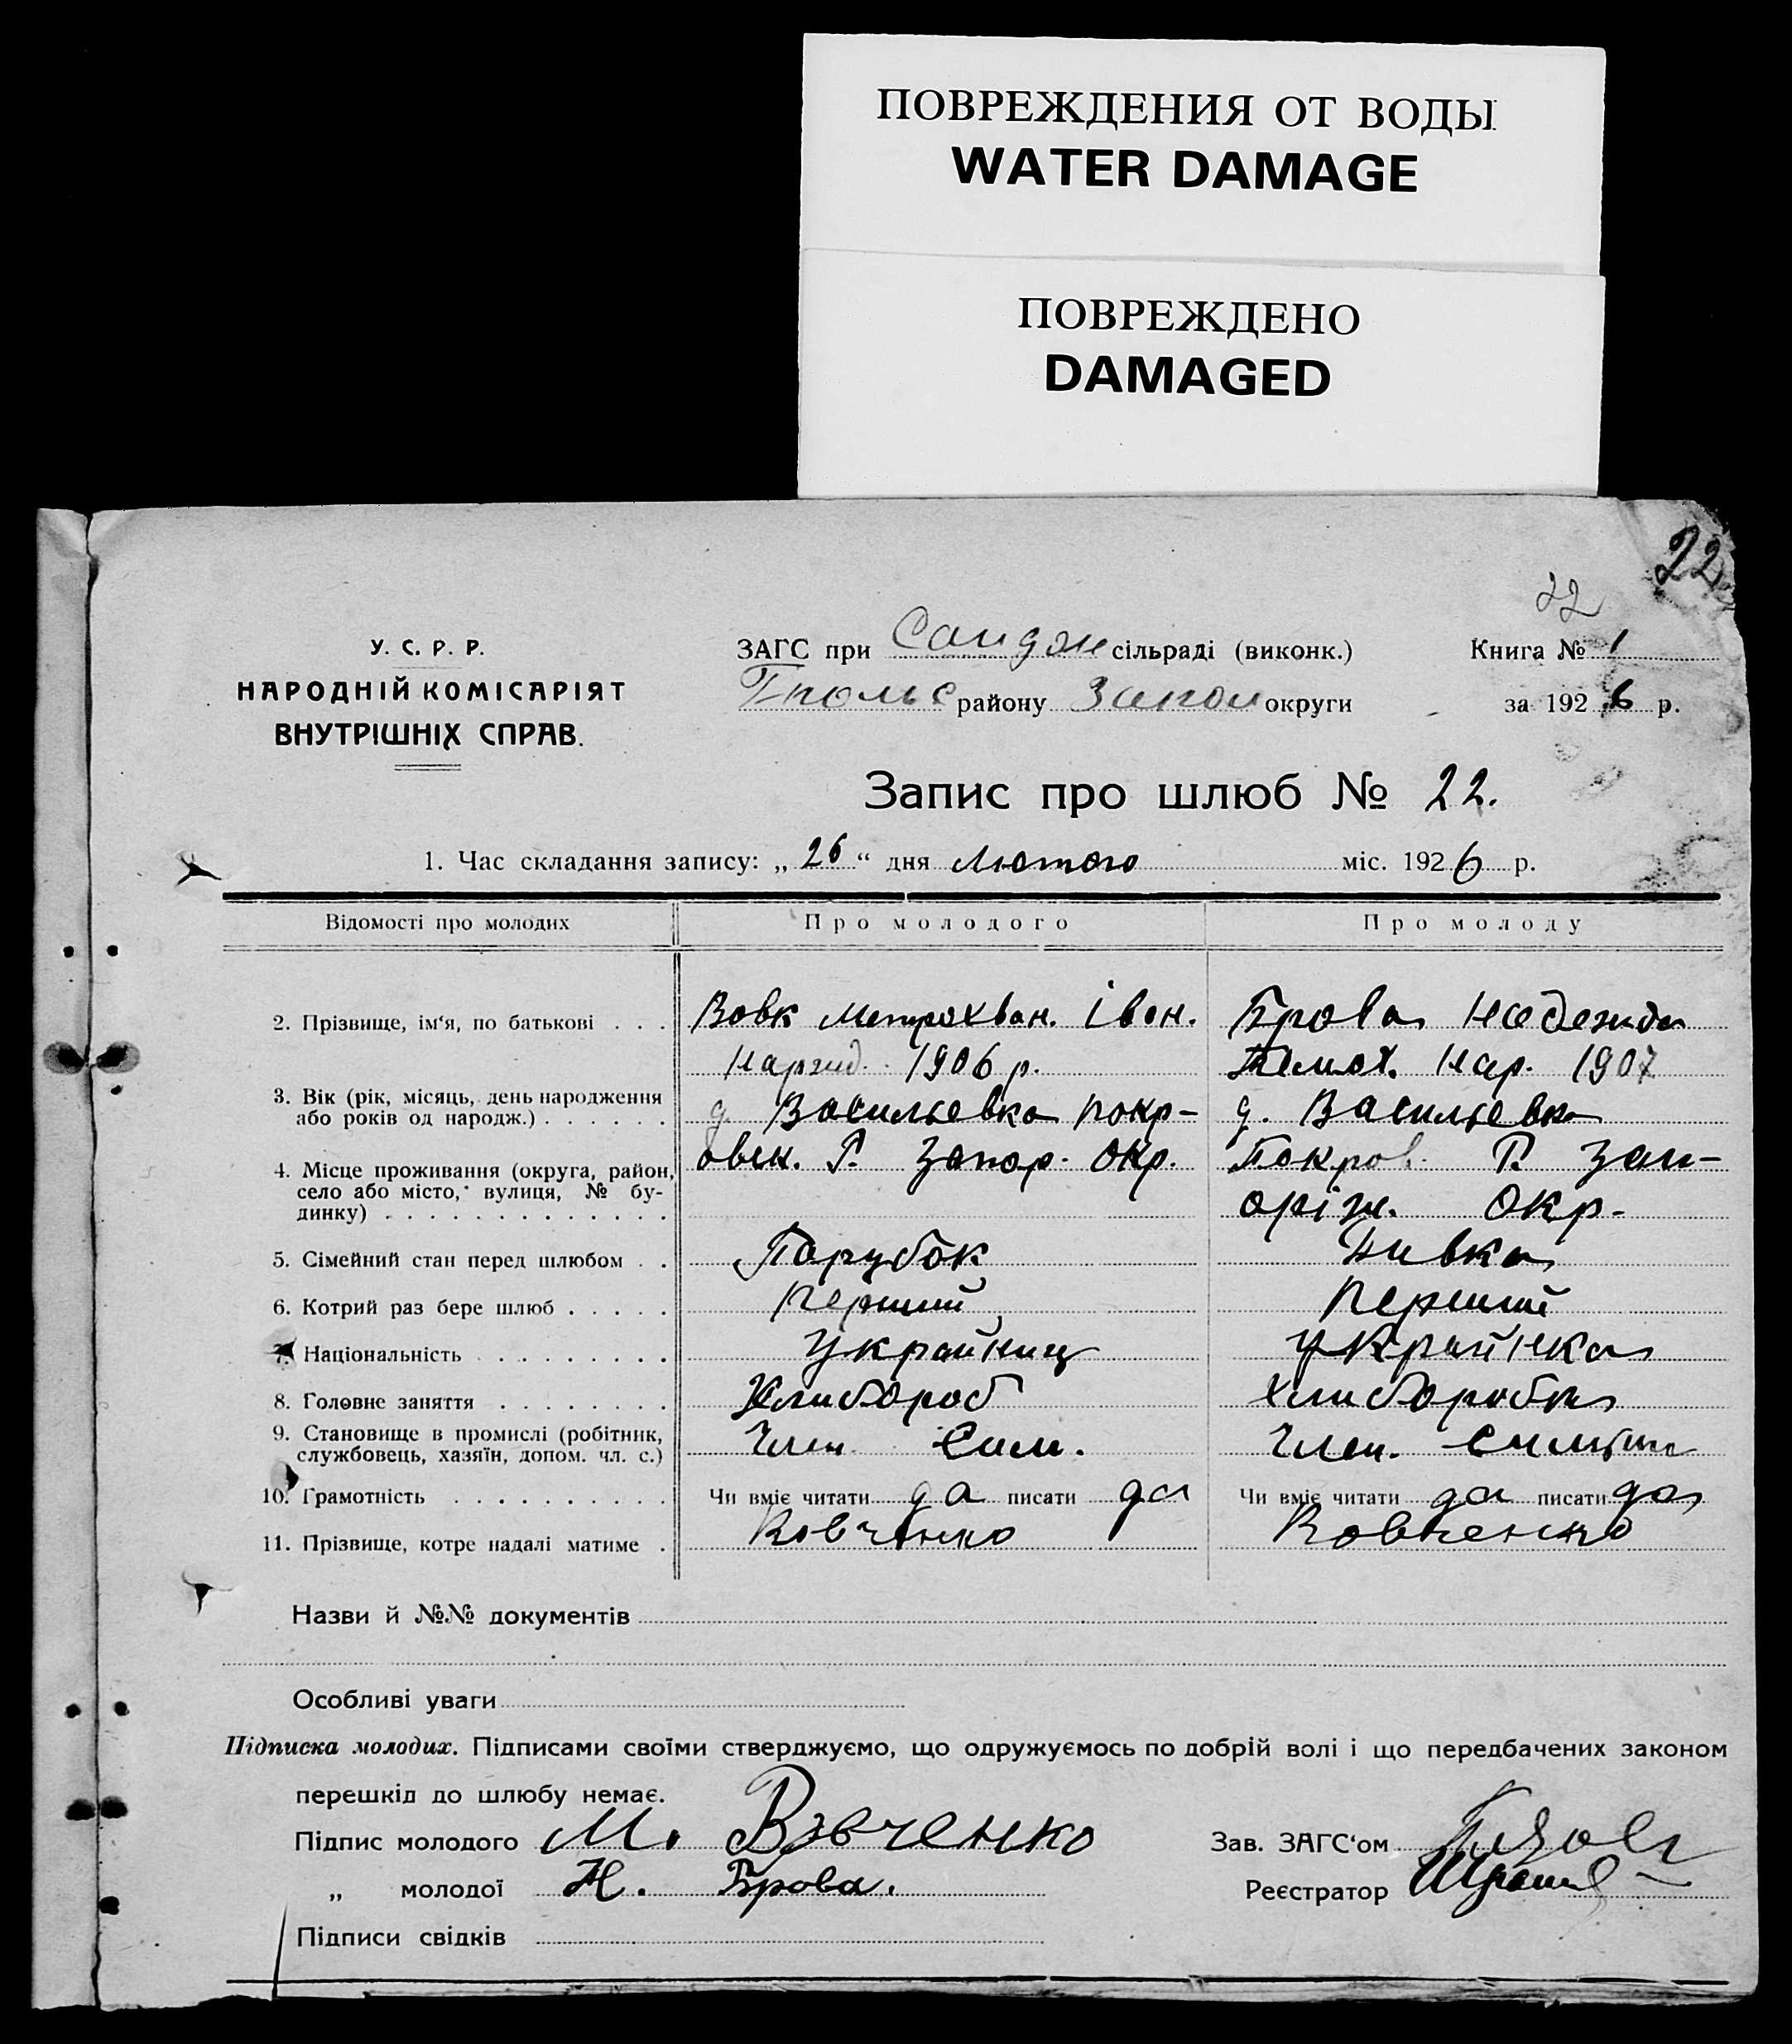 ПОВРЕЖДЕНИЯ ОТ ВОДЫ
WATER DAMAGE
ПОВРЕЖДЕНО
DAMAGED
22
22
У. С. Р. Р.
НАРОДНІЙ КОМІСАРІЯТ
ВНУТРІШНІХ СПРАВ.
ЗАГС при сільраді (виконк.) Книга № 1
району Запор округи за 1926 р.
Запис про шлюб № 22.
1. Час складання запису: „26“ дня Лютого міс. 1926 р.
Відомості про молодих Про молодого Про молоду
2. Прізвище, ім‘я, по батькові . . . Вовк Митрохван. Іван. Брова Надежда
1906 р. Тимох. Нар. 1907
3. Вік (рік, місяць, день народження
або років од народж.) . . . . . . д. Васильевка Покр- д. Васильевка
4. Місце проживання (округа, район, овск. Р. Запор. Окр. Покров. Р. Зап-
село або місто, вулиця, № бу-
динку) . . . . . . . . . . . . . оріж. Окр.
5. Сімейний стан перед шлюбом . . Парубок Дивка
6. Котрий раз бере шлюб . . . . . Перший Перший
7. Національність . . . . . . . . . Украйниц Украйнка
8. Головне заняття . . . . . . . . Хлибороб Хлиборобка
9. Становище в промислі (робітник,
службовець, хазяїн, допом. чл. с.) Член Сим. Член. Симьи
10. Грамотність . . . . . . . . . . Чи вміє читати да писати да Чи вміє читати да писати да
11. Прізвище, котре надалі матиме . Вовченко Вовченко
Назви й №№ документів
Особливі уваги
Підписка молодих. Підписами своїми стверджуємо, що одружуємось по добрій волі і що передбачених законом
перешкід до шлюбу немає.
Підпис молодого М. Вовченко Зав. ЗАГС‘ом
„ молодої Н. Брова. Реєстратор
Підписи свідків